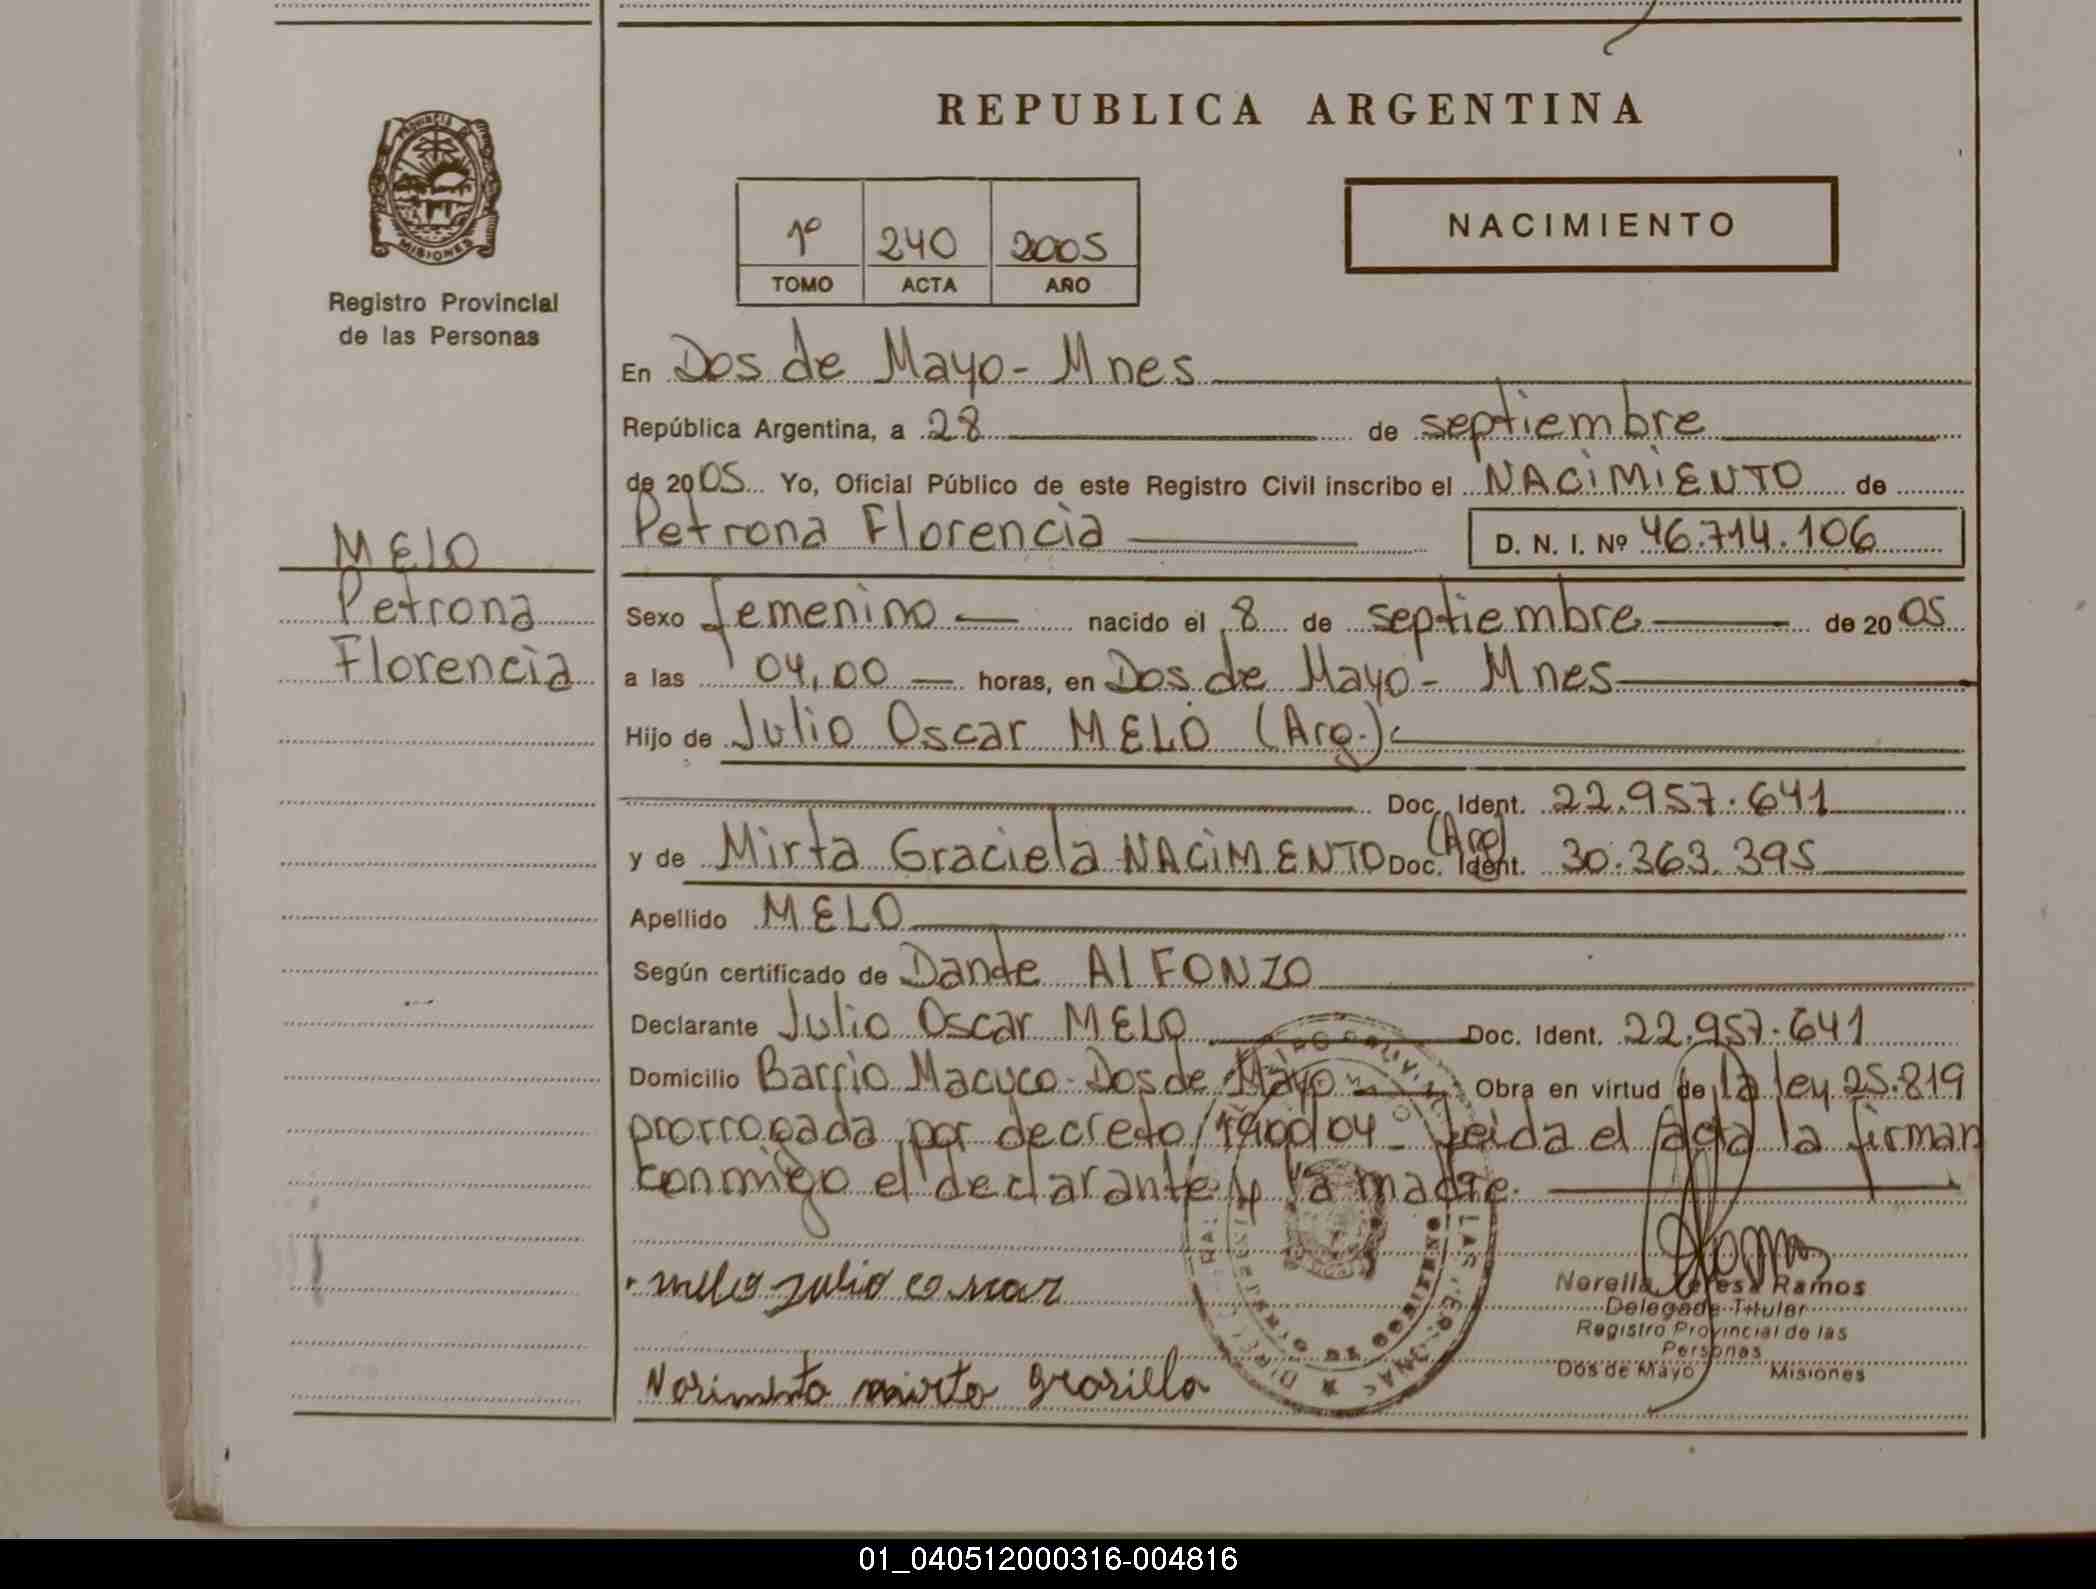 REPUBLICA ARGENTINA
PROVINCIA DE
MISIONES
Registro Provincial
de las Personas
1º 240 2005
TOMO ACTA AÑO
NACIMIENTO
En Dos de Mayo - Mnes
República Argentina, a 28 de septiembre
de 2005 Yo, Oficial Público de este Registro Civil inscribo el NACIMIENTO de
MELO
Petrona Florencia D. N. I. Nº 46.714.106
Petrona
Florencia
Sexo femenino nacido el 8 de septiembre de 2005
a las 04,00 horas, en Dos de Mayo - Mnes
Hijo de Julio Oscar MELO (Arg.)
Doc. Ident. 22.957.641
y de Mirta Graciela NACIMENTO (Arg) Doc. Ident. 30.363.395
Apellido MELO
Según certificado de Dande ALFONZO
Declarante Julio Oscar MELO Doc. Ident. 22.957.641
Domicilio Barrio Macuco - Dos de Mayo Obra en virtud de la ley 25.819
prorrogada por decreto 1900/04 - Leida el acta la firman
conmigo el declarante y la madre.
melo julio
mirta
Norella Teresa Ramos
Delegada Titular
Registro Provincial de las
Personas
Dos de Mayo Misiones
01_040512000316-004816